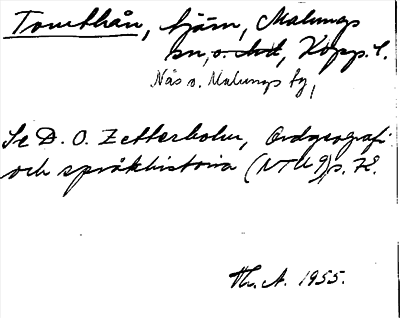 Tomthån, tjärn, Malungs
sn, o. hd, Kopp. l.
Nås o. Malungs fg,
Se D. O. Zetterholm, Ordgeografi
och språkhistoria (NTU 9) s. 72.
Th. A. 1955.